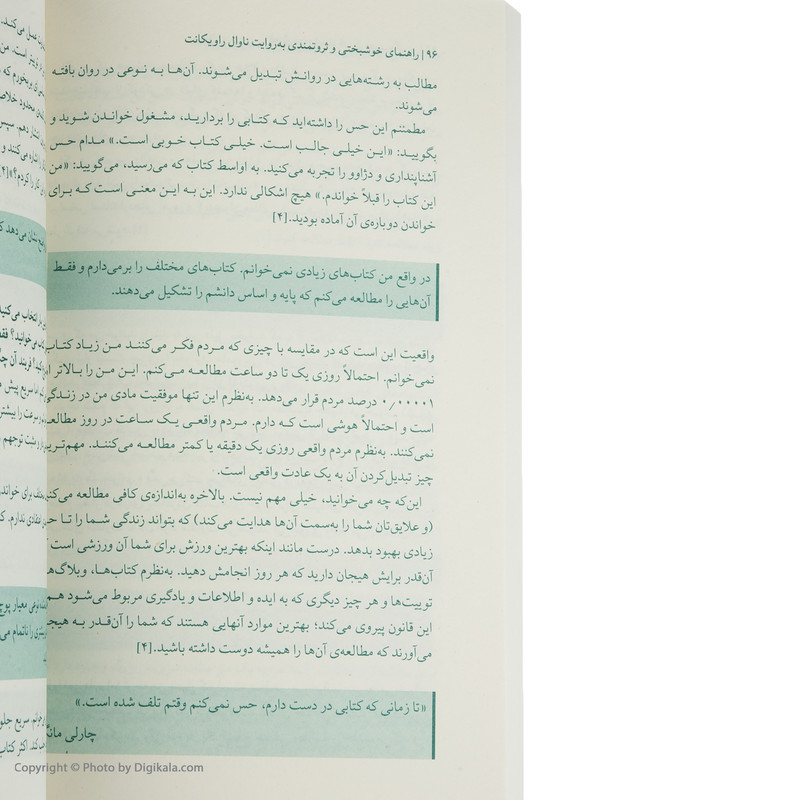 ۹۶ | راهنمای خوشبختی و ثروتمندی به‌روایت ناوال راویکانت
مطالب به رشته‌هایی در روانش تبدیل می‌شوند. آن‌ها به نوعی در روان بافته
می‌شوند.
مطمئنم این حس را داشته‌اید که کتابی را بردارید، مشغول خواندن شوید و
بگویید: «این خیلی جالب است. خیلی کتاب خوبی است.» مدام حس
آشناپنداری و دژاوو را تجربه می‌کنید. به اواسط کتاب که می‌رسید، می‌گویید: «من
این کتاب را قبلاً خواندم.» هیچ اشکالی ندارد. این به این معنی است که برای
خواندن دوباره‌ی آن آماده بودید.[۴]
در واقع من کتاب‌های زیادی نمی‌خوانم. کتاب‌های مختلف را برمی‌دارم و فقط
آن‌هایی را مطالعه می‌کنم که پایه و اساس دانشم را تشکیل می‌دهند.
واقعیت این است که در مقایسه با چیزی که مردم فکر می‌کنند من زیاد کتاب
نمی‌خوانم. احتمالاً روزی یک تا دو ساعت مطالعه می‌کنم. این من را بالاتر از
۰/۰۰۰۰۱ درصد مردم قرار می‌دهد. به‌نظرم این تنها موفقیت مادی من در زندگی
است و احتمالاً هوشی است که دارم. مردم واقعی یک ساعت در روز مطالعه
نمی‌کنند. به‌نظرم مردم واقعی روزی یک دقیقه یا کمتر مطالعه می‌کننـد. مهم‌ترین
چیز تبدیل‌کردن آن به یک عادت واقعی است.
این‌که چه می‌خوانید، خیلی مهم نیست. بالاخره به‌اندازه‌ی کافی مطالعه می‌کنید
(و علایق‌تان شما را به‌سمت آن‌ها هدایت می‌کند) که بتواند زندگی شما را تا حد
زیادی بهبود بدهد. درست مانند اینکه بهترین ورزش برای شما آن ورزشی است که
آن‌قدر برایش هیجان دارید که هر روز انجامش دهید. به‌نظرم کتاب‌ها، وبلاگ‌ها،
توییت‌ها و هر چیز دیگری که به ایده و اطلاعات و یادگیری مربوط می‌شود هم
این قانون پیروی می‌کند؛ بهترین موارد آنهایی هستند که شما را آن‌قدر به هیجان
می‌آورند که مطالعه‌ی آن‌ها را همیشه دوست داشته باشید.[۴]
«تا زمانی که کتابی در دست دارم، حس نمی‌کنم وقتم تلف شده است.»
چارلی مانگر
Copyright © Photo by Digikala.com